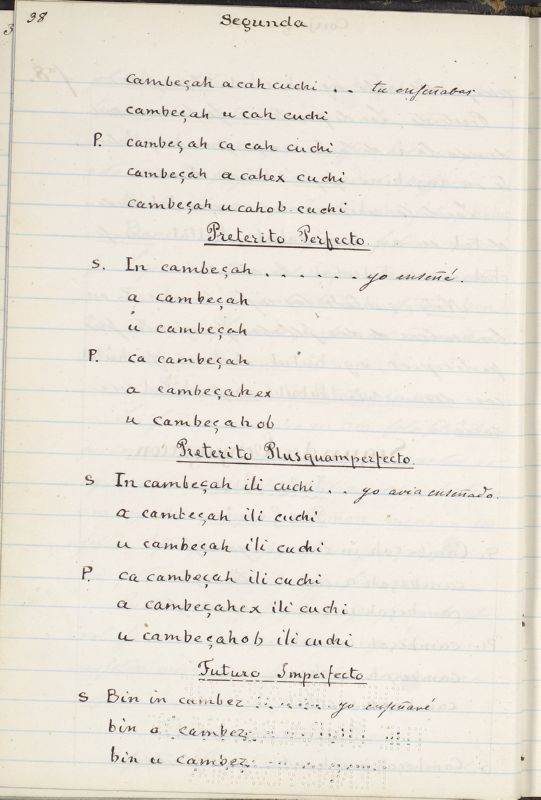 38
Segunda
cambeçah a cah cuchi . . tu enseñabas
cambeçah u cah cuchi
P. cambeçah ca cah cuchi
cambeçah a cahex cuchi
cambeçah u cahob cuchi
Preterito Perfecto
S. In cambeçah . . . . . . yo enseñé.
a cambeçah
u cambeçah
P. ca cambeçah
a cambeçahex
u cambeçahob
Preterito Plusquamperfecto.
S In cambeçah ili cuchi . . yo avia enseñado.
a cambeçah ili cuchi
u cambeçah ili cuchi
P. ca cambeçah ili cuchi
a cambeçahex ili cuchi
u cambeçahob ili cuchi
Futuro Imperfecto
S Bin in cambez . . . . . . yo enseñaré
bin a cambez
bin u cambez